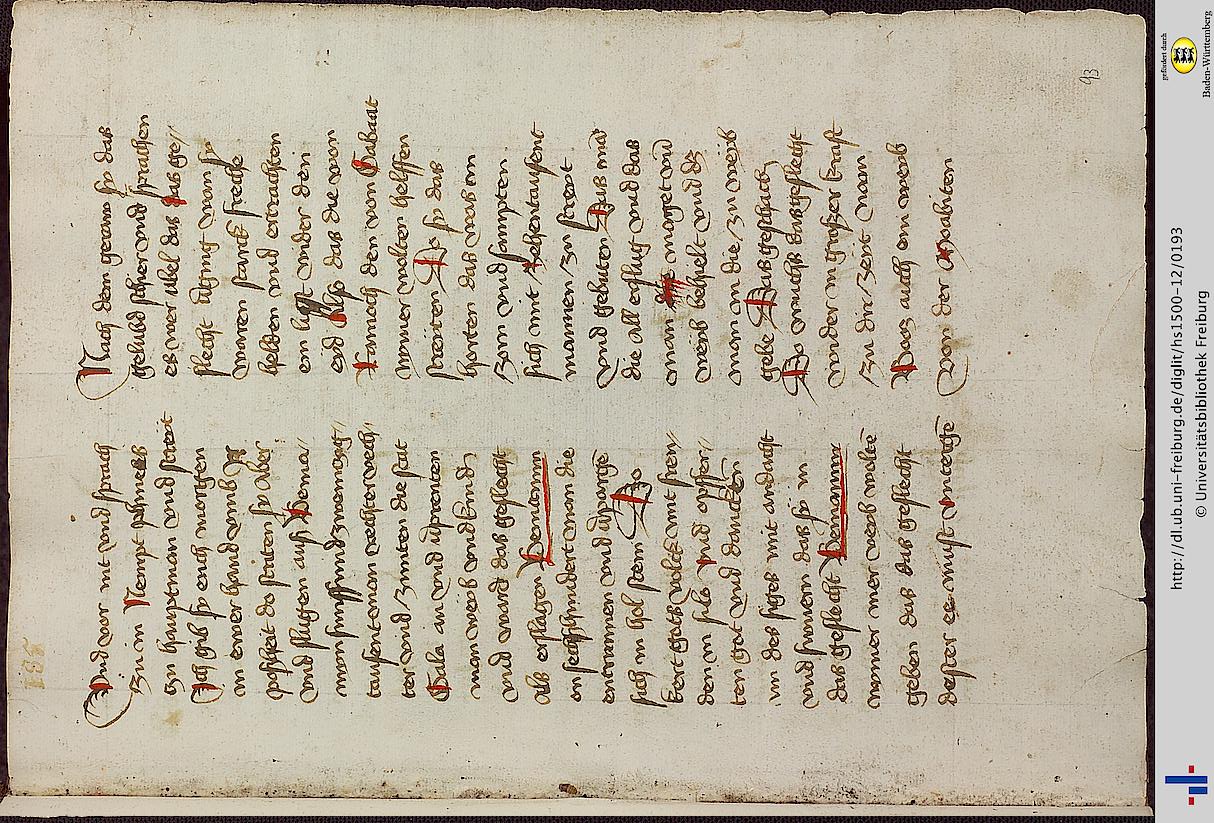 Vnd vor mt vnd sprach
Zu in Nempt
zu hauptman vnd streit
Jch gib sy euch morgen
in ewer hand vmb
poßheit do striten sy aber
vnd slugen auß Benia//
min funffundzwenczig//
tausent man
ter vnd zunten die stat
Gabaa an vnd uprenten
man weib vnd kind
vnd ward das geslecht
als erslagen Beniamin
on sechßhundert man die
entrunnen vnd
sich in hol stein Do
kert gotz volck mit frew//
den in silo vnd opffer//
ten got vnd danckten
im des siges mit andacht
vnd swuren das sy in
das geslecht Beniamin
nymmer mer weib wolte
geben das das geslecht
dester ee must vntergē
Nach dem gerawn sy das
gelubd schier vnd sprachen
es wer übel das das ge//
slecht abging wann sy
waren starck frech
helden vnd ertrachten
ein list vnder den
eid Also das die von
Darnach den von Gabaat
nymmer wolten helffen
streiten Do sy das
horten das was in
zorn vnd sampten
sich mit zehentausent
mannen zu streit
vnd gebuten Das man
die all erslug vnd das
man die maget vnd
weib behielt vnd dz
man in die zu weib
gebe Das geschach
Do wuchß das geslecht
wider in großer krafft
zu der zeit nam
Booz auch ein weib
von der Moabiten
93
http://dl.ub.uni-freiburg.de/diglit/hs1500-12/0193
© Universitätsbibliothek Freiburg
gefördert durch
Baden-Württemberg